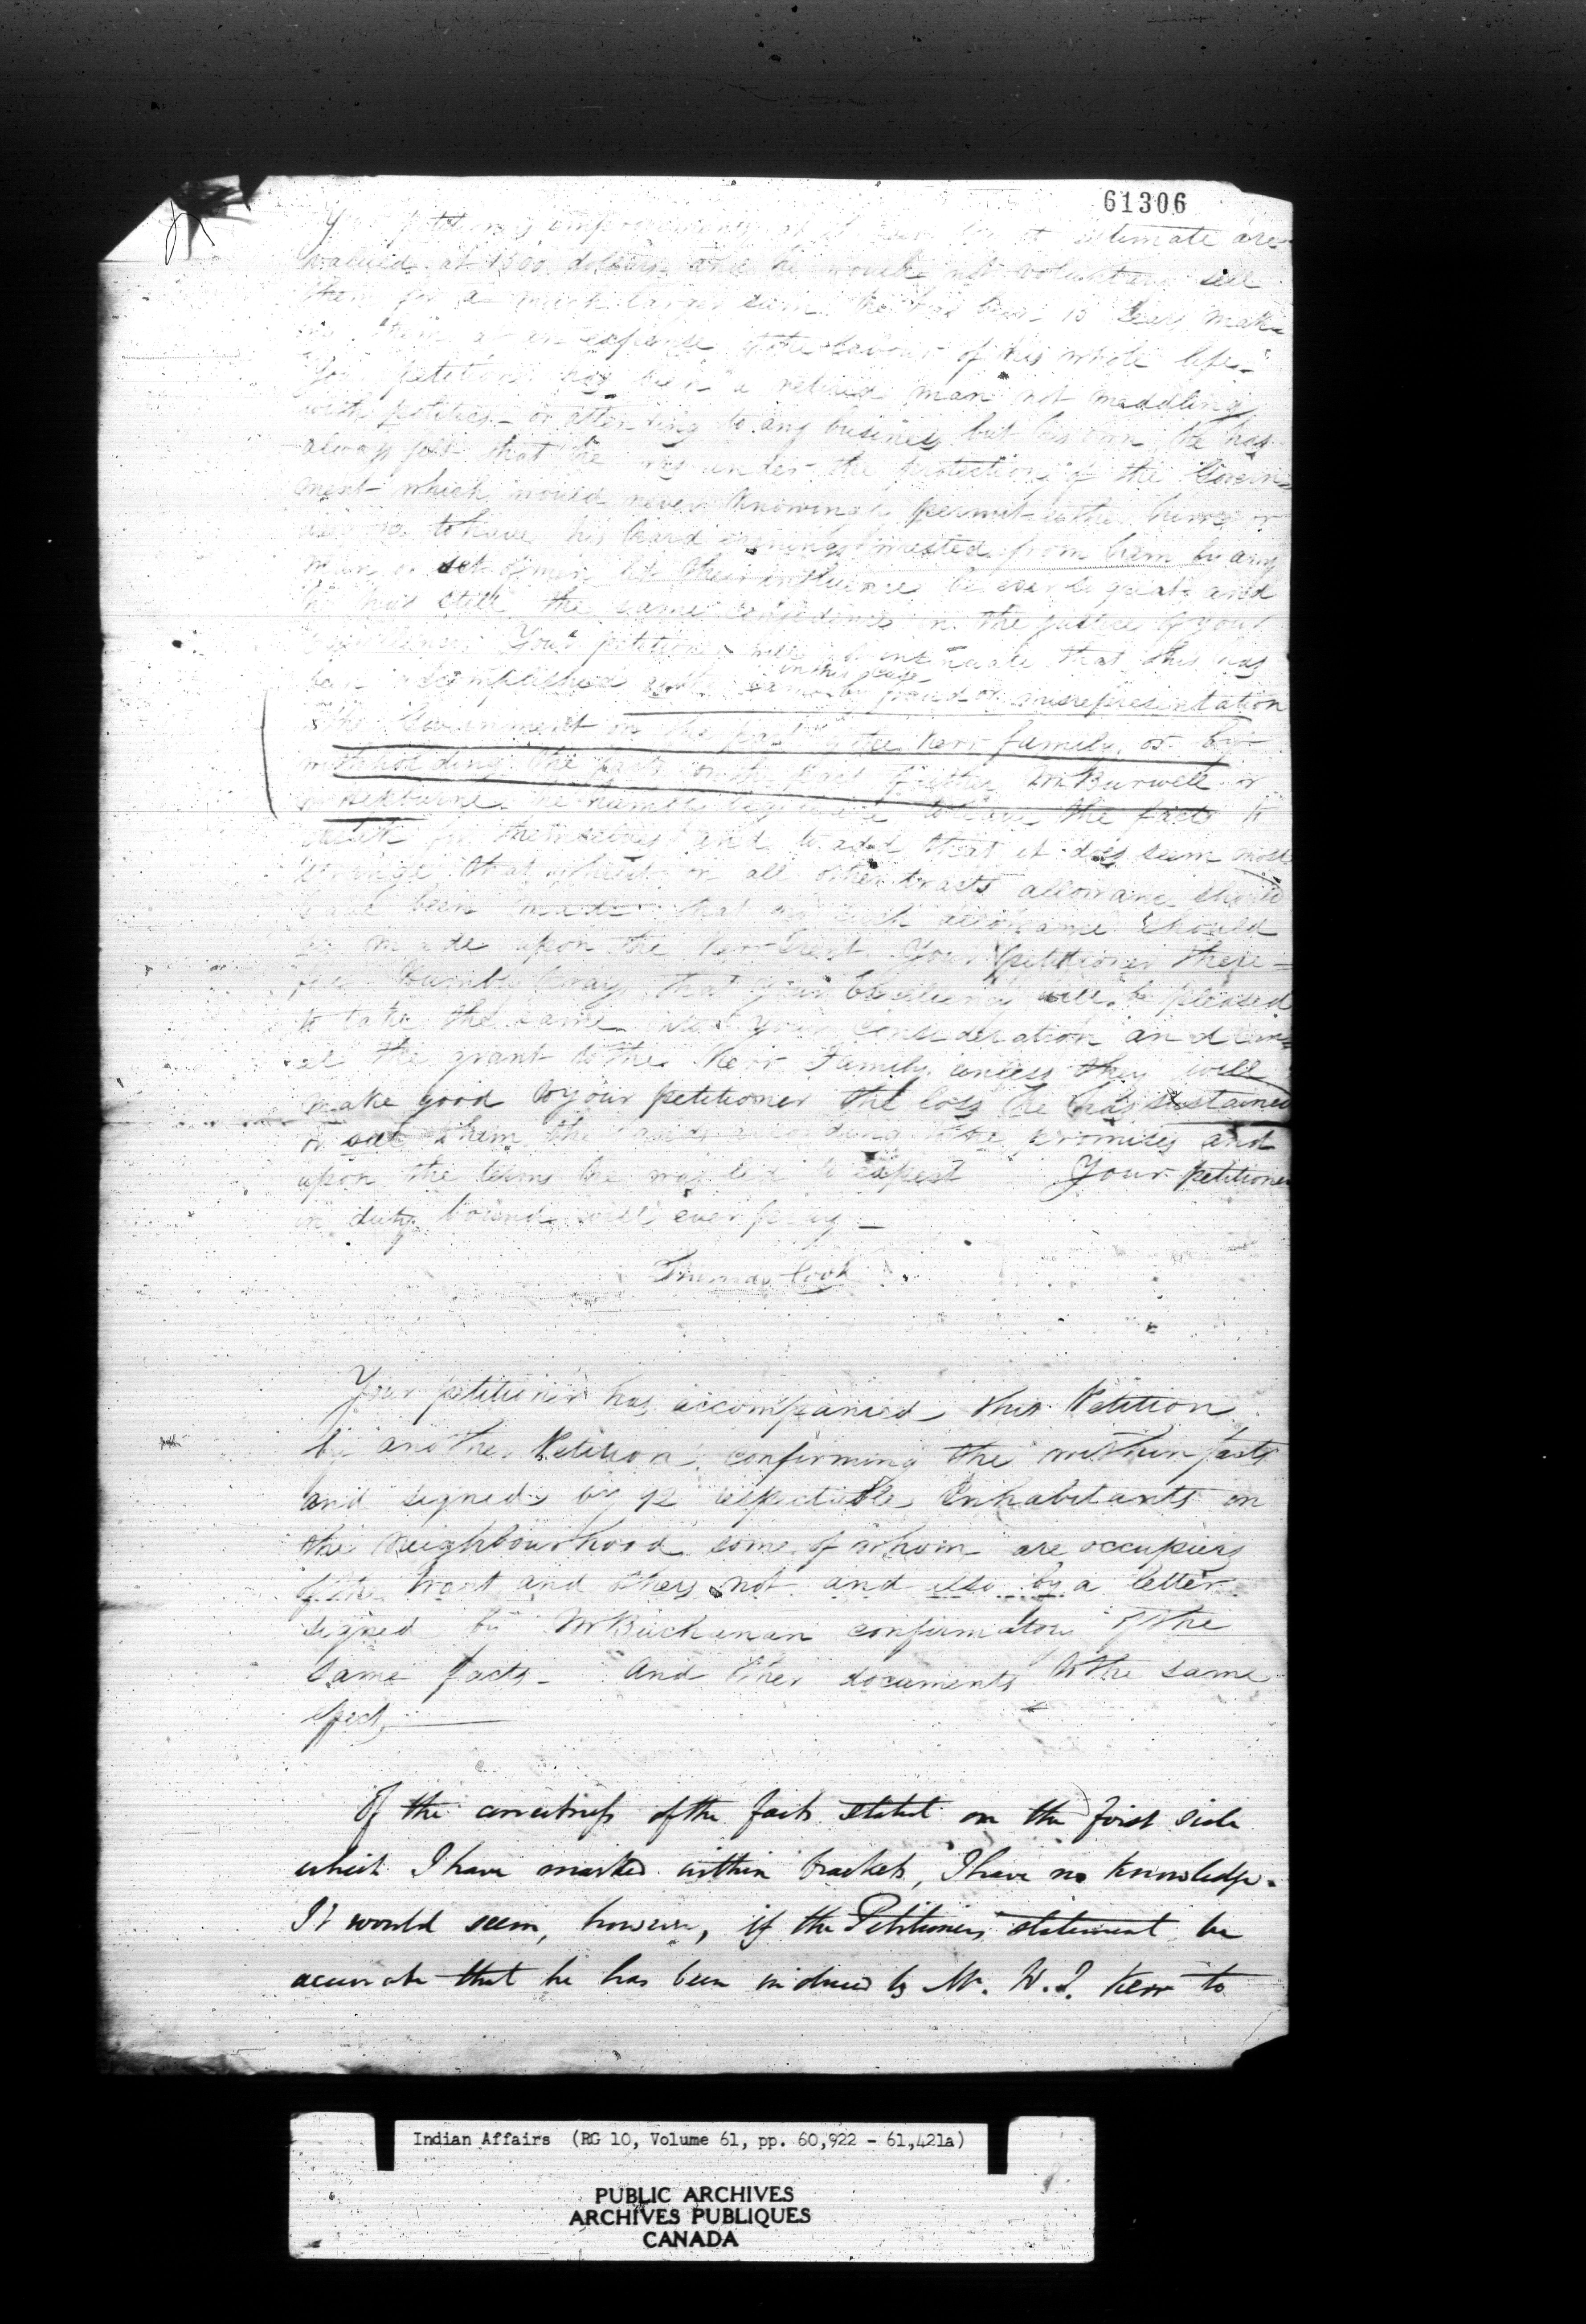 61306
Your petitioners improvements at estimate are
valued at 1500 dollars and he would not sell
them for a much larger sum he has been 10 years mak
expense of the labour of his whole life -
Your petitioner has been a retired man not meddling
with politics - or attending to any business but his own he has
always felt that he was under the protection of the Govern=
ment which would never knowingly permit either him or
to have his hard earnings wrested from him by any
man or set of men let their influence be ever so great and
he has still the same confidence in the justice of your
Excellency. Your petitioner will not insinuate that this has
in this case
been accomplished by fraud or misrepresentation
to the Government on the part of the Kerr family, or by
withholding the facts on the part of either Mr Burwell or
he humbly begs leave to leave the facts to
speak for themselves and to add that it does seem most
strange that whilst on all other tracts allowance should
have been made that no such allowance should
be made upon the Kerr Tract. Your petitioner there=
fore humbly prays that your Excellency will be pleased
to take the same into your consideration and
the grant to the Kerr Family unless they will
make good to your petitioner the loss he has sustained
or sell them the lands according to the promises and
upon the terms he was led to expect Your petitioner
in duty bound will ever pray -
Thomas Cook
Your petitioner has accompanied this Petition
by another Petition confirming the within facts
and signed by 92 respectable Inhabitants in
the neighbourhood some of whom are occupiers
of the tract and others not and also by a letter
signed by Mr Buchanan confirmatory of the
same facts - And other documents to the same
effect,
Of the correctness of the facts stated on the first side
which I have marked within brackets, I have no knowledge.
It would seem, however, if the Petitioners statement be
accurate that he has been induced by Mr. W. J. Kerr to
Indian Affairs (RG 10, Volume 61, pp. 60,922 - 61,421a)
PUBLIC ARCHIVES
ARCHIVES PUBLIQUES
CANADA